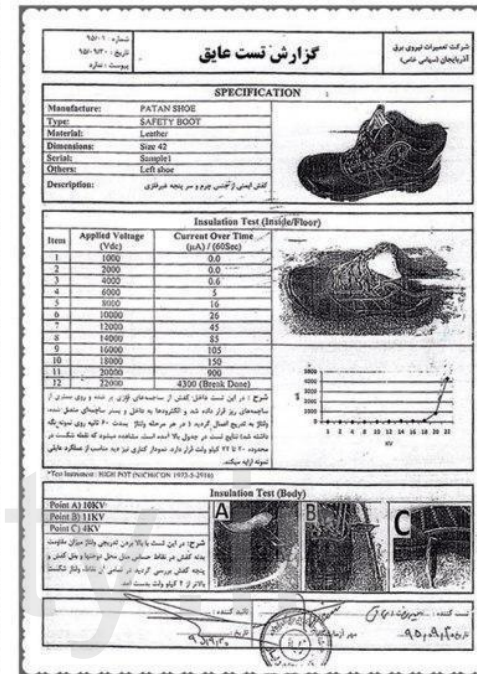 شرکت تعمیرات نیروی برق
آذربایجان (سهامی خاص)
گزارش تست عایق
شماره : ۹۵/۰۱
تاریخ : ۹۵/۰۹/۲۰
پیوست : ندارد
SPECIFICATION
Manufacture: PATAN SHOE
Type: SAFETY BOOT
Material: Leather
Dimensions: Size 42
Serial: Sample1
Others: Left shoe
Description: کفش ایمنی از جنس چرم و سر پنجه غیرفلزی
Insulation Test (Inside/Floor)
Item Applied Voltage (Vdc) Current Over Time (µA) / (60Sec)
1 1000 0.0
2 2000 0.0
3 4000 0.6
4 6000 5
5 8000 16
6 10000 26
7 12000 45
8 14000 85
9 16000 105
10 18000 150
11 20000 900
12 22000 4300 (Break Done)
5000
4000
3000
2000
1000
0
1 2 4 6 8 10 12 14 16 18 20 22
KV
شرح : در این تست داخل کفش از ساچمه‌های فلزی پر شده و روی بستری از
ساچمه‌های ریز قرار داده شد و الکترودها به داخل و بستر ساچمه‌ای متصل شده،
ولتاژ به تدریج اعمال گردید ( در هر مرحله ولتاژ بمدت ۶۰ ثانیه روی نمونه نگه
داشته شد) نتایج تست در جدول بالا آمده است. مشاهده میشود که نقطه شکست در
محدوده ۲۰ تا ۲۲ کیلو ولت قرار دارد. نمودار کناری نیز دید مناسب از عملکرد عایقی
نمونه ارایه میکند.
*Test Instrument : HIGH POT (NICHICON 1973-5-2916)
Insulation Test (Body)
Point A) 10KV
Point B) 11KV
Point C) 4KV
A
B
C
شرح: در این تست با بالا بردن تدریجی ولتاژ میزان مقاومت
بدنه کفش در نقاط حساس مثل محل دوختها و بغل کفش و
پنجه کفش بررسی گردید. در تمامی این نقاط، ولتاژ شکست
بالاتر از ۴ کیلو ولت بدست آمد.
تست کننده :
تاریخ: ۹۵,۰۹,۲۰
مهر آزمایشگاه
تائید کننده :
تاریخ: